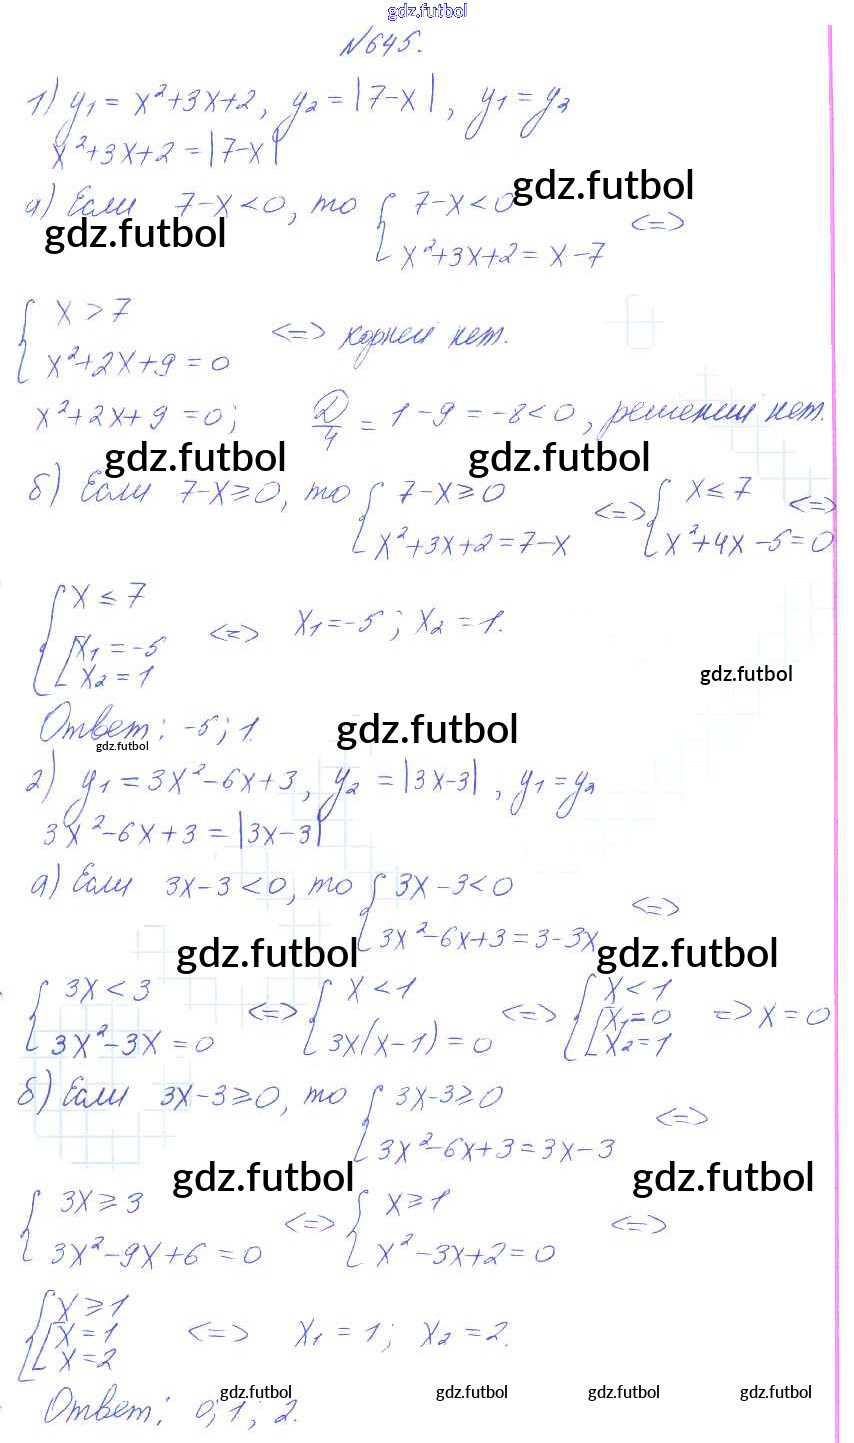 gdz.futbol
№645.
1) y₁ = x²+3x+2, y₂ = |7-x|, y₁ = y₂
x²+3x+2 = |7-x|
а) Если 7-x<0, то { 7-x<0 gdz.futbol
gdz.futbol { x²+3x+2 = x-7 <=>
{ x > 7
{ x²+2x+9 = 0 <=> корней нет.
x²+2x+9 = 0; D/4 = 1-9 = -8<0, решений нет.
gdz.futbol gdz.futbol
б) Если 7-x≥0, то { 7-x≥0 <=> { x≤7 <=>
{ x²+3x+2=7-x { x²+4x-5=0
{ x ≤ 7
{ [ x₁ = -5 <=> x₁=-5; x₂ = 1.
[ x₂ = 1
gdz.futbol
Ответ: -5; 1. gdz.futbol
gdz.futbol
2) y₁ = 3x²-6x+3, y₂ = |3x-3|, y₁ = y₂
3x²-6x+3 = |3x-3|
а) Если 3x-3<0, то { 3x-3<0 <=>
{ 3x²-6x+3=3-3x
gdz.futbol gdz.futbol
{ 3x<3 <=> { x<1 <=> { x<1 => x=0
{ 3x²-3x=0 { 3x(x-1)=0 { [ x₁=0
[ x₂=1
б) Если 3x-3≥0, то { 3x-3≥0 <=>
{ 3x²-6x+3=3x-3
gdz.futbol gdz.futbol
{ 3x≥3 <=> { x≥1 <=>
{ 3x²-9x+6=0 { x²-3x+2=0
{ x≥1
{ [ x=1 <=> x₁ = 1; x₂ = 2.
[ x=2
gdz.futbol gdz.futbol gdz.futbol gdz.futbol
Ответ: 0; 1; 2.